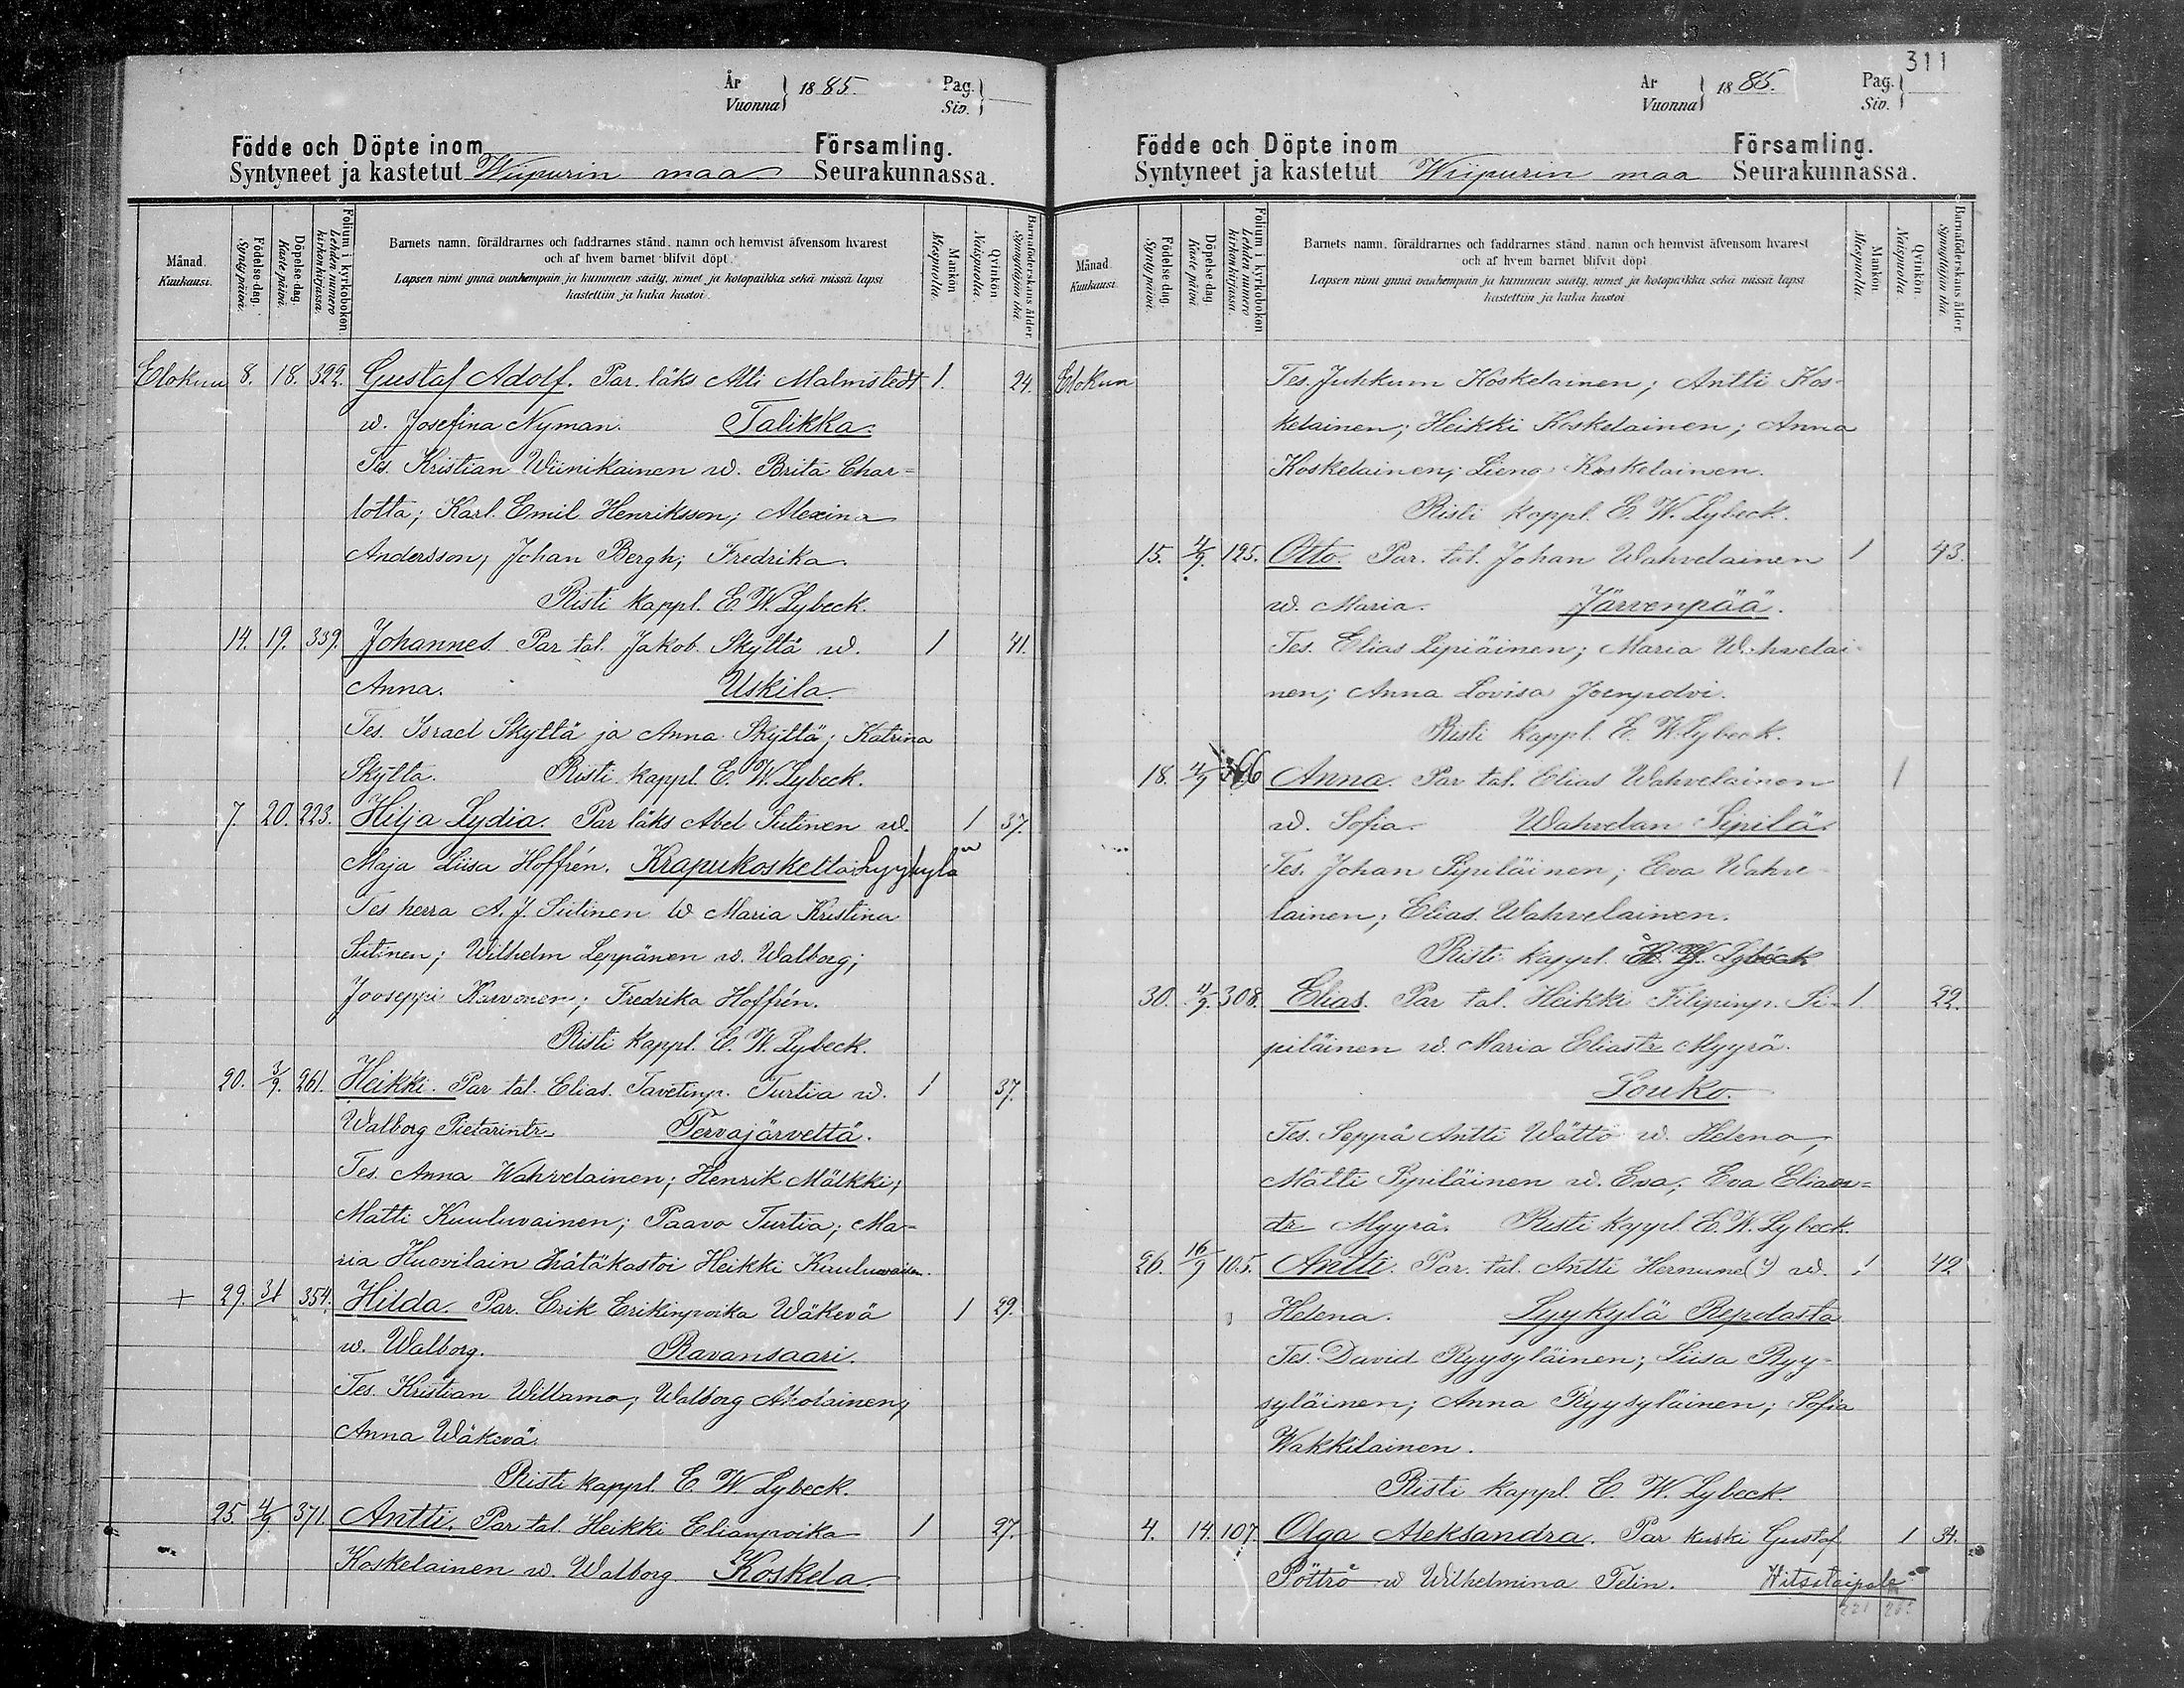 År
Vuonna } 1885.
Pag.
Siv. }
Födde och Döpte inom Församling.
Syntyneet ja kastetut Wiipurin maa Seurakunnassa.
Månad.
Kuukausi.
Födelse-dag.
Syntypäivä.
Döpelse-dag.
Kastepäivä.
Folium i kyrkoboken.
Lehden numero kirkonkirjassa.
Barnets namn, föräldrarnes och faddrarnes stånd, namn och hemvist äfvensom hvarest
och af hvem barnet blifvit döpt.
Lapsen nimi ynnä vanhempain ja kummein sääty, nimet ja kotopaikka sekä missä lapsi
kastettiin ja kuka kastoi.
Mankön
Miespuolia.
Qvinkön
Naispuolia.
Barnaföderskans ålder.
Synnyttäjän ikä.
Elokuu 8. 18. 322. Gustaf Adolf. Par. läks Atti Malmstedt 1. 24.
w. Josefina Nyman. Talikka.
Tes. Kristian Wiinikainen w. Brita Char=
lotta; Karl Emil Henriksson; Alexina
Andersson; Johan Bergh; Fredrika.
Risti kappl. E. W. Lybeck.
14. 19. 339. Johannes. Par tal. Jakob Skyttä w. 1 41.
Anna. Uskila.
Tes. Israel Skyttä ja Anna Skyttä; Katrina
Skytta. Risti kappl. E. W. Lybeck.
7 20. 223. Hilja Lydia. Par läks Abel Sutinen w. 1 37.
Maja Liisa Hoffrén. Krapukoskelta Lyykylä
Tes herra A. J. Sutinen w Maria Kristina
Sutinen; Wilhelm Leppänen w. Walborg;
Jooseppi Karvonen; Fredrika Hoffrén.
Risti kappl. E. W. Lybeck.
20. 3/9. 261. Heikki. Par tal. Elias Tavetinp. Turtia w. 1 37.
Walborg Pietarintr. Pervajärveltä.
Tes. Anna Wahvelainen; Henrik Mälkki;
Matti Kuuluvainen; Paavo Turtia; Ma-
ria Huovilain hätäkastoi Heikki Kuuluvainen.
+ 29. 31 354. Hilda. Par. Erik Erikinpoika Wäkevä 1 29.
w. Walborg. Ravansaari.
Tes. Kristian Willamo; Walborg Akolainen;
Anna Wäkevä.
Risti kappl. E. W. Lybeck.
25. 4/9 371. Antti. Par tal. Heikki Elianpoika 1 27.
Koskelainen w. Walborg Koskela.
311
År
Vuonna } 1885.
Pag.
Siv. }
Födde och Döpte inom Församling.
Syntyneet ja kastetut Wiipurin maa Seurakunnassa.
Månad.
Kuukausi.
Födelse-dag.
Syntypäivä.
Döpelse-dag.
Kastepäivä.
Folium i kyrkoboken.
Lehden numero kirkonkirjassa.
Barnets namn, föräldrarnes och faddrarnes stånd, namn och hemvist äfvensom hvarest
och af hvem barnet blifvit döpt.
Lapsen nimi ynnä vanhempain ja kummein sääty, nimet ja kotopaikka sekä missä lapsi
kastettiin ja kuka kastoi
Mankön
Miespuolia.
Qvinkön
Naispuolia.
Barnaföderskans ålder.
Synnyttäjän ikä.
Elokuu Tes. Juhkum Koskelainen; Antti Kos-
kelainen; Heikki Koskelainen; Anna
Koskelainen; Liena Koskelainen.
Risti kappl. E. W. Lybeck.
15. 4/9. 125. Otto. Par. tal. Johan Wahvelainen 1 43.
w. Maria. Järvenpää.
Tes. Elias Lipiäinen; Maria Wahvelai-
nen; Anna Lovisa Joenpolvi.
Risti kappl. E. W. Lybeck.
18. 4/9 366 Anna. Par tal. Elias Wahvelainen 1
w. Sofia. Wahvelan Sipilä.
Tes. Johan Sipiläinen; Eva Wahve-
lainen; Elias Wahvelainen.
Risti kappl. Lybeck
30. 4/9. 308. Elias. Par tal. Heikki Filipinp. Si- 1. 22.
piläinen w. Maria Eliastr Myyrä.
Souko.
Tes. Seppä Antti Wättö w. Helena,
Matti Sipiläinen w. Eva; Eva Elian=
tr Myyrä. Risti kappl. E. W. Lybeck.
26. 16/9 105. Antti. Par. tal. Antti Hernune(?) w. 1 42
Helena. Lyykylä Repolasta
Tes. David Ryysyläinen; Liisa Ryy-
syläinen; Anna Ryysyläinen; Sofia
Wakkilainen.
Risti kappl. E. W. Lybeck.
4. 14. 107. Olga Aleksandra. Par kuski Gustaf 1 34.
Pöttrö w Wilhelmina Telin. Hitsitaipale